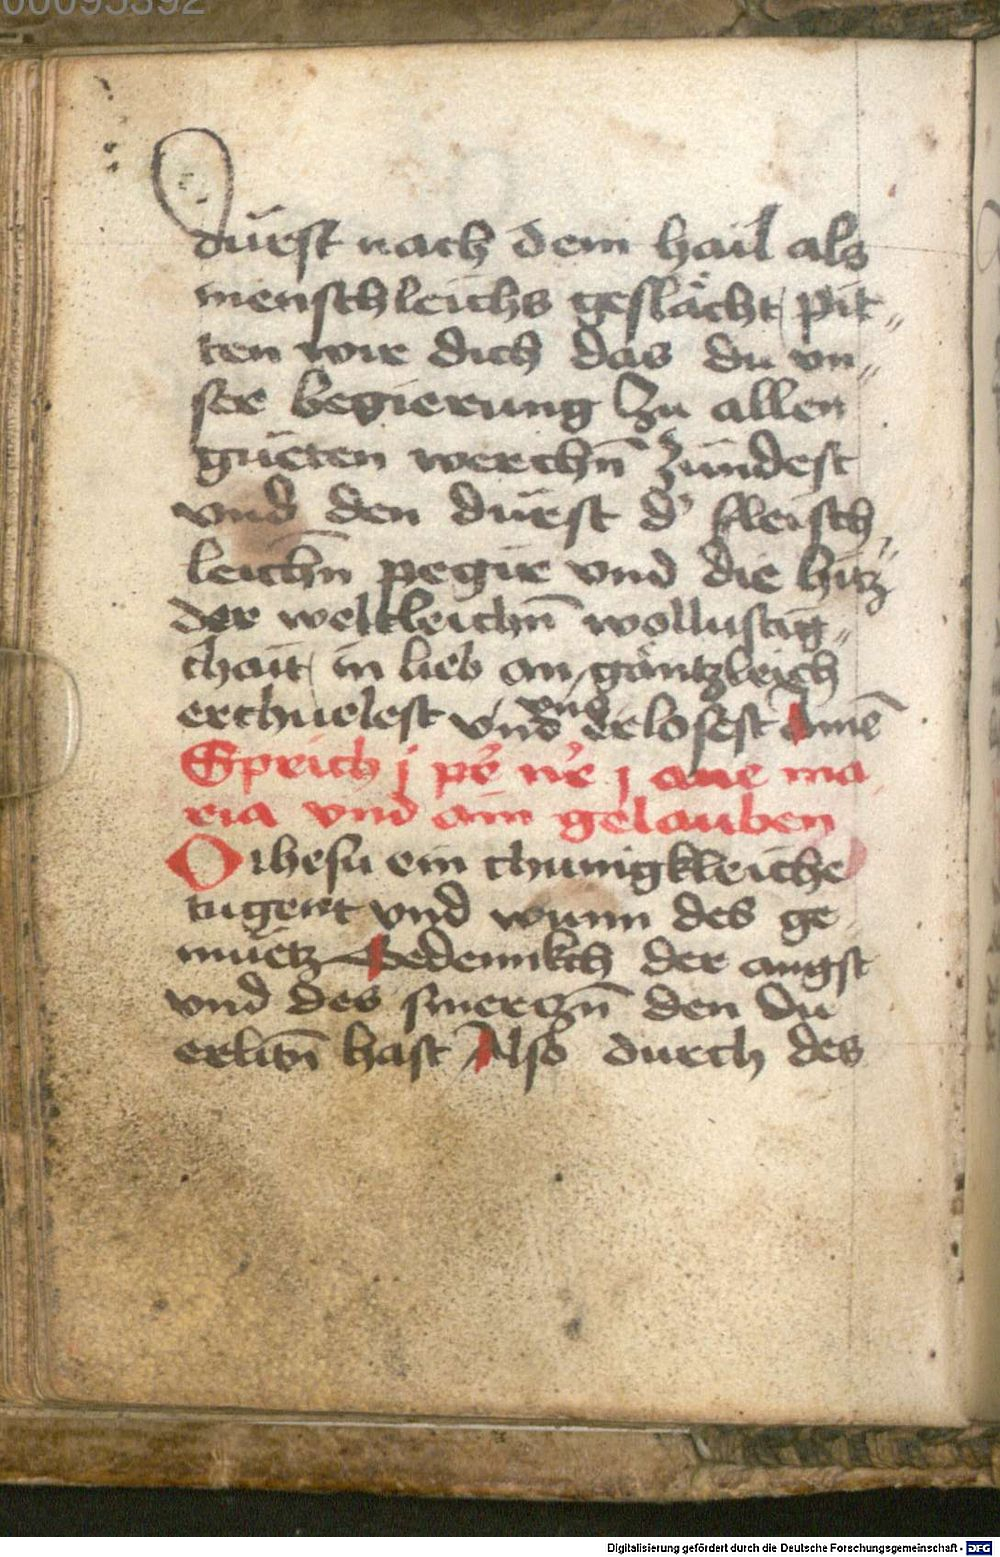 00095392
dürst nach dem hail als
menschleichs geslächt pit-
ten wir dich das du vn-
ser begierung zu allen
güeten werchn̄ zündest
vnd den dürst d' fleisch-
leichn̄ pegir vnd die hitz
der weltleichn̄ wollustig-
chait in lieb an gäntzleich
erchuelest vnd vnd erlosest Amē
Sprich j pr̄ nr̄ j aue ma
ria vnd ain gelauben
O ihesu ein chunigkleiche
tugent vnd wunn des ge-
müetz Gedennkch der angst
vnd des smerczn̄ den du
erlitn̄ hast Also durch des
Digitalisierung gefördert durch die Deutsche Forschungsgemeinschaft - DFG